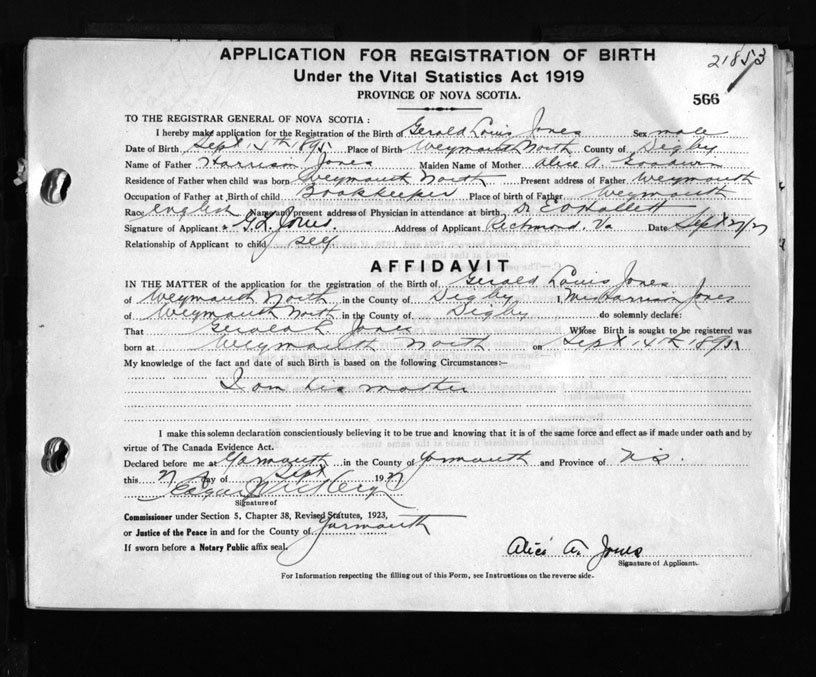 APPLICATION FOR REGISTRATION OF BIRTH
21853
Under the Vital Statistics Act 1919
PROVINCE OF NOVA SCOTIA.
566
TO THE REGISTRAR GENERAL OF NOVA SCOTIA :
I hereby make application for the Registration of the Birth of Gerald Louis Jones Sex male
Date of Birth Sept 14th 1895 Place of Birth Weymouth North County of Digby
Name of Father Harrison Jones Maiden Name of Mother Alice A. Goodwin
Residence of Father when child was born Weymouth North Present address of Father Weymouth
Occupation of Father at Birth of child Bookkeeper Place of birth of Father Weymouth
Race English Name and present address of Physician in attendance at birth Dr. E O Hallett
Signature of Applicant G. L. Jones. Address of Applicant Richmond. Va Date Sept 27/27
Relationship of Applicant to child self
AFFIDAVIT
IN THE MATTER of the application for the registration of the Birth of Gerald Louis Jones
of Weymouth North in the County of Digby I, Mrs Harrison Jones
of Weymouth North in the County of Digby do solemnly declare:
That Gerald L. Jones Whose Birth is sought to be registered was
born at Weymouth North on Sept 14th 1895
My knowledge of the fact and date of such Birth is based on the following Circumstances:—
I am his mother
I make this solemn declaration conscientiously believing it to be true and knowing that it is of the same force and effect as if made under oath and by
virtue of The Canada Evidence Act.
Declared before me at Yarmouth in the County of Yarmouth and Province of N.S.
this 27 day of Sept 1927
Signature of
Commissioner under Section 5, Chapter 38, Revised Statutes, 1923,
or Justice of the Peace in and for the County of Yarmouth
If sworn before a Notary Public affix seal.
Alice A. Jones
Signature of Applicant.
For Information respecting the filling out of this Form, see Instructions on the reverse side.